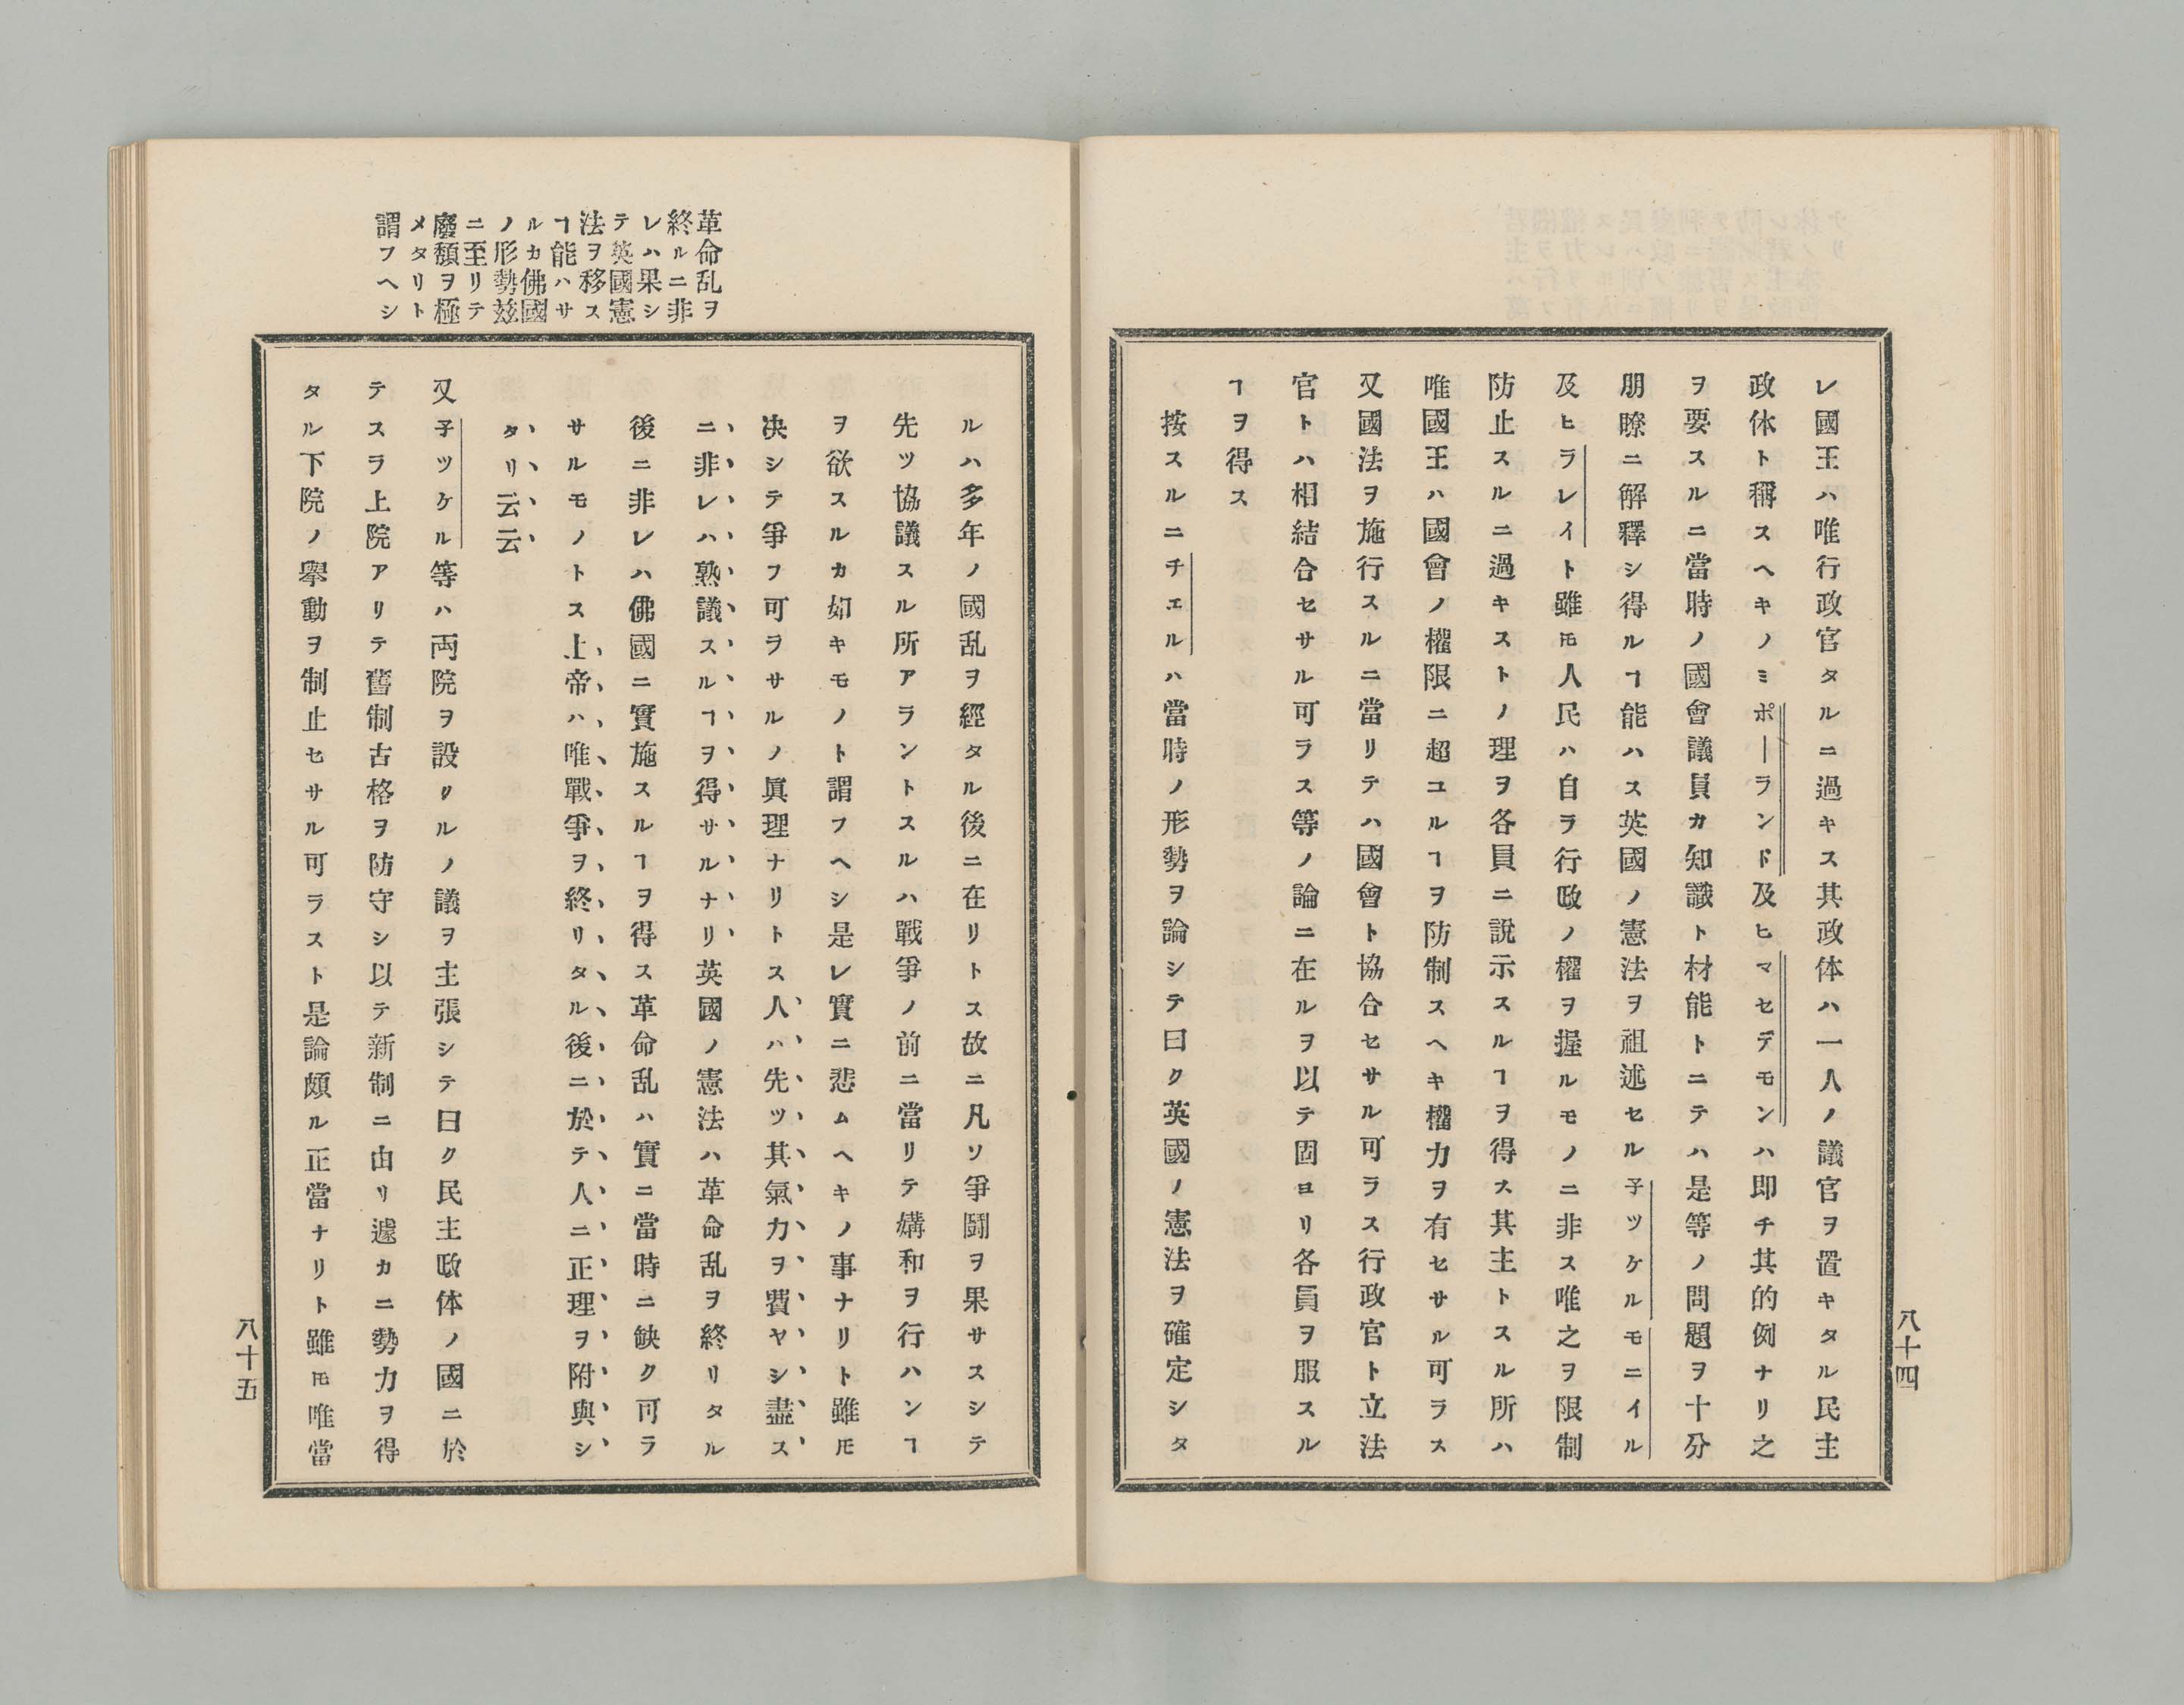 レ國王ハ唯行政官タルニ過キス其政体ハ一人ノ議官ヲ置キタル民主
政体ト稱スヘキノミポーランド及ヒマセデモンハ即チ其的例ナリ之
ヲ要スルニ當時ノ國會議員カ知識ト材能トニテハ是等ノ問題ヲ十分
朋瞭ニ解釋シ得ルヿ能ハス英國ノ憲法ヲ祖述セル子ツケルモニイル
及ヒラレイト雖𪜈人民ハ自ラ行政ノ權ヲ握ルモノニ非ス唯之ヲ限制
防止スルニ過キストノ理ヲ各員ニ説示スルヿヲ得ス其主トスル所ハ
唯國王ハ國會ノ權限ニ超ユルヿヲ防制スヘキ權力ヲ有セサル可ラス
又國法ヲ施行スルニ當リテハ國會ト協合セサル可ラス行政官ト立法
官トハ相結合セサル可ラス等ノ論ニ在ルヲ以テ固ヨリ各員ヲ服スル
ヿヲ得ス
按スルニチエルハ當時ノ形勢ヲ論シテ曰ク英國ノ憲法ヲ確定シタ
八十四
革命乱ヲ
終ルニ非
レハ果シ
テ英國憲
法ヲ移ス
ヿ能ハサ
ルカ佛國
ノ形勢玆
ニ至リテ
廢頽ヲ極
メタリト
謂フヘシ
ルハ多年ノ國乱ヲ經タル後ニ在リトス故ニ凡ソ爭鬪ヲ果サスシテ
先ツ協議スル所アラントスルハ戰爭ノ前ニ當リテ媾和ヲ行ハンヿ
ヲ欲スルカ如キモノト謂フヘシ是レ實ニ悲ムヘキノ事ナリト雖𪜈
决シテ爭フ可ラサルノ眞理ナリトス人ハ先ツ其氣力ヲ費ヤシ盡ス
ニ非レハ熟議スルヿヲ得サルナリ英國ノ憲法ハ革命乱ヲ終リタル
後ニ非レハ佛國ニ實施スルヿヲ得ス革命乱ハ實ニ當時ニ缺ク可ラ
サルモノトス上帝ハ唯戰爭ヲ終リタル後ニ於テ人ニ正理ヲ附與シ
タリ云云
又子ツケル等ハ両院ヲ設クルノ議ヲ主張シテ曰ク民主政体ノ國ニ於
テスラ上院アリテ舊制古格ヲ防守シ以テ新制ニ由リ遽カニ勢力ヲ得
タル下院ノ擧動ヲ制止セサル可ラスト是論頗ル正當ナリト雖𪜈唯當
八十五